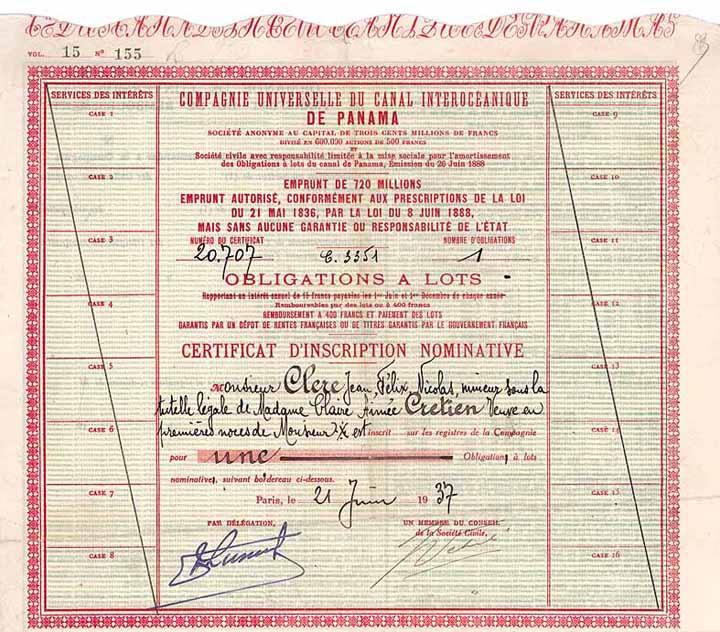 VOL. 15 Nº 155
SERVICES DES INTÉRÊTS
CASE 1
CASE 2
CASE 3
CASE 4
CASE 5
CASE 6
CASE 7
CASE 8
COMPAGNIE UNIVERSELLE DU CANAL INTEROCÉANIQUE
DE PANAMA
SOCIÉTÉ ANONYME AU CAPITAL DE TROIS CENTS MILLIONS DE FRANCS
DIVISÉ EN 600.000 ACTIONS DE 500 FRANCS
ET
Société civile avec responsabilité limitée à la mise sociale pour l'amortissement
des Obligations à lots du canal de Panama, Emission du 26 Juin 1888
EMPRUNT DE 720 MILLIONS
EMPRUNT AUTORISÉ, CONFORMÉMENT AUX PRESCRIPTIONS DE LA LOI
DU 21 MAI 1836, PAR LA LOI DU 8 JUIN 1888,
MAIS SANS AUCUNE GARANTIE OU RESPONSABILITÉ DE L'ÉTAT
NUMÉRO DU CERTIFICAT NOMBRE D'OBLIGATIONS
20.707 C. 3351 1
OBLIGATIONS A LOTS
Rapportant un intérêt annuel de 15 francs payables les 1er Juin et 1er Décembre de chaque année
Remboursables par des lots ou à 400 francs
REMBOURSEMENT A 400 FRANCS ET PAIEMENT DES LOTS
GARANTIS PAR UN DÉPOT DE RENTES FRANÇAISES OU DE TITRES GARANTIS PAR LE GOUVERNEMENT FRANÇAIS
CERTIFICAT D'INSCRIPTION NOMINATIVE
Monsieur Clerc Jean, Félix, Nicolas, mineur sous la
tutelle légale de Madame Claire Aimée Cretien Veuve en
premières noces de Monsieur est inscrit sur les registres de la Compagnie
pour une Obligation, à lots
nominative, suivant bordereau ci-dessous.
Paris, le 21 Juin 1937
PAR DÉLÉGATION, UN MEMBRE DU CONSEIL
de la Société Civile,
SERVICES DES INTÉRÊTS
CASE 9
CASE 10
CASE 11
CASE 12
CASE 13
CASE 14
CASE 15
CASE 16